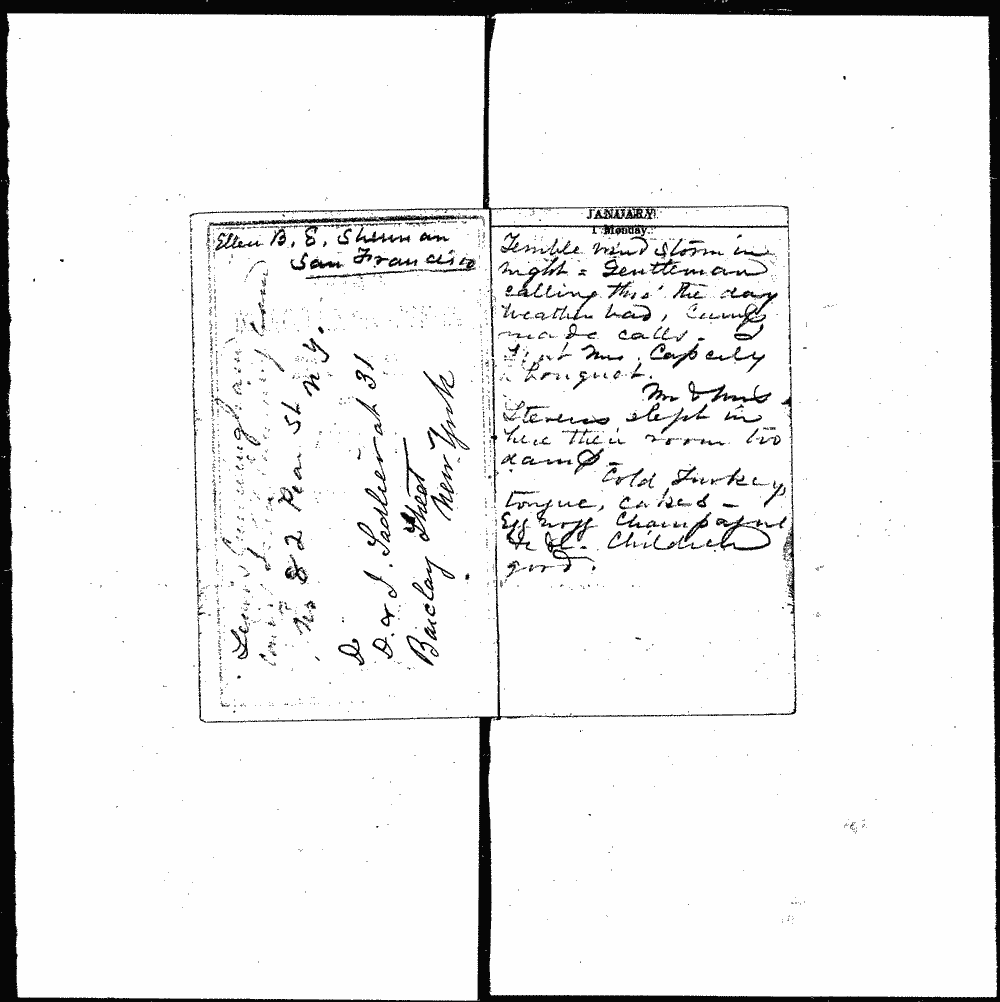 Ellen B. E. Sherman
San Francisco
Lewis Cunningham
No 82 Pear St N. Y.
D. & J. Sadlier at 31
Barclay Street
New York
JANUARY
1 Monday.
Terrible wind storm in
night = Gentleman
calling thro' the day
weather bad, Cump
made calls - I
sent Mrs. Capperly
a bouquet.
Mr & Mrs
Stevens slept in
here their room too
damp -
Cold Turkey,
tongue, cakes -
Egg nogg Champagne
&c &c. Children
good.